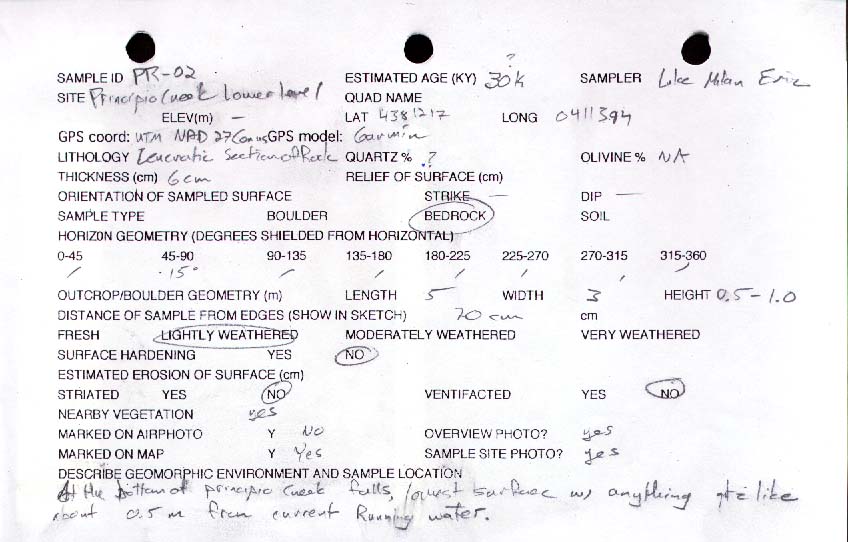 ?
SAMPLE ID PR-02 ESTIMATED AGE (KY) 30k SAMPLER Luke Milan Eric
SITE Principio Creek Lower level QUAD NAME
ELEV(m) — LAT 4381217 LONG 0411394
GPS coord: UTM NAD 27 Conus GPS model: Garmin
LITHOLOGY Leucratic Section of Rock QUARTZ % ? OLIVINE % NA
THICKNESS (cm) 6cm RELIEF OF SURFACE (cm)
ORIENTATION OF SAMPLED SURFACE STRIKE — DIP —
SAMPLE TYPE BOULDER BEDROCK SOIL
HORIZON GEOMETRY (DEGREES SHIELDED FROM HORIZONTAL)
0-45 45-90 90-135 135-180 180-225 225-270 270-315 315-360
/ 15° / / / / / /
OUTCROP/BOULDER GEOMETRY (m) LENGTH 5 WIDTH 3 HEIGHT 0.5-1.0
DISTANCE OF SAMPLE FROM EDGES (SHOW IN SKETCH) 70 cm cm
FRESH LIGHTLY WEATHERED MODERATELY WEATHERED VERY WEATHERED
SURFACE HARDENING YES NO
ESTIMATED EROSION OF SURFACE (cm)
STRIATED YES NO VENTIFACTED YES NO
NEARBY VEGETATION yes
MARKED ON AIRPHOTO Y NO OVERVIEW PHOTO? yes
MARKED ON MAP Y Yes SAMPLE SITE PHOTO? yes
DESCRIBE GEOMORPHIC ENVIRONMENT AND SAMPLE LOCATION
At the bottom of principio creek falls, lowest surface w/ anything qtz like
about 0.5 m from current Running water.